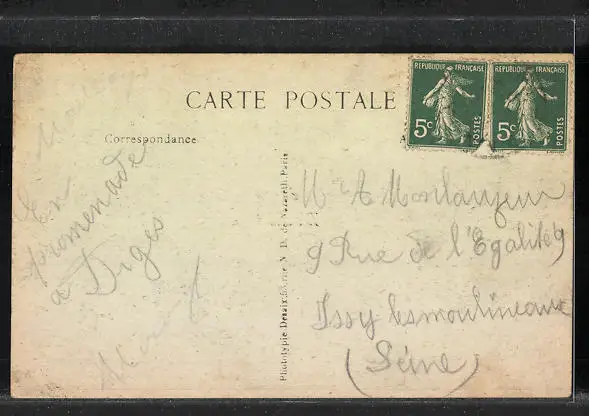 CARTE POSTALE
Correspondance
RÉPUBLIQUE FRANÇAISE
5c
POSTES
RÉPUBLIQUE FRANÇAISE
5c
POSTES
En
promenade
à Diges
Phototypie Desaix, N. D. de Nazareth, Paris
Mr A Monlanjeur
9 Rue de l'Egalité 9
Issy les moulineaux
(Seine)